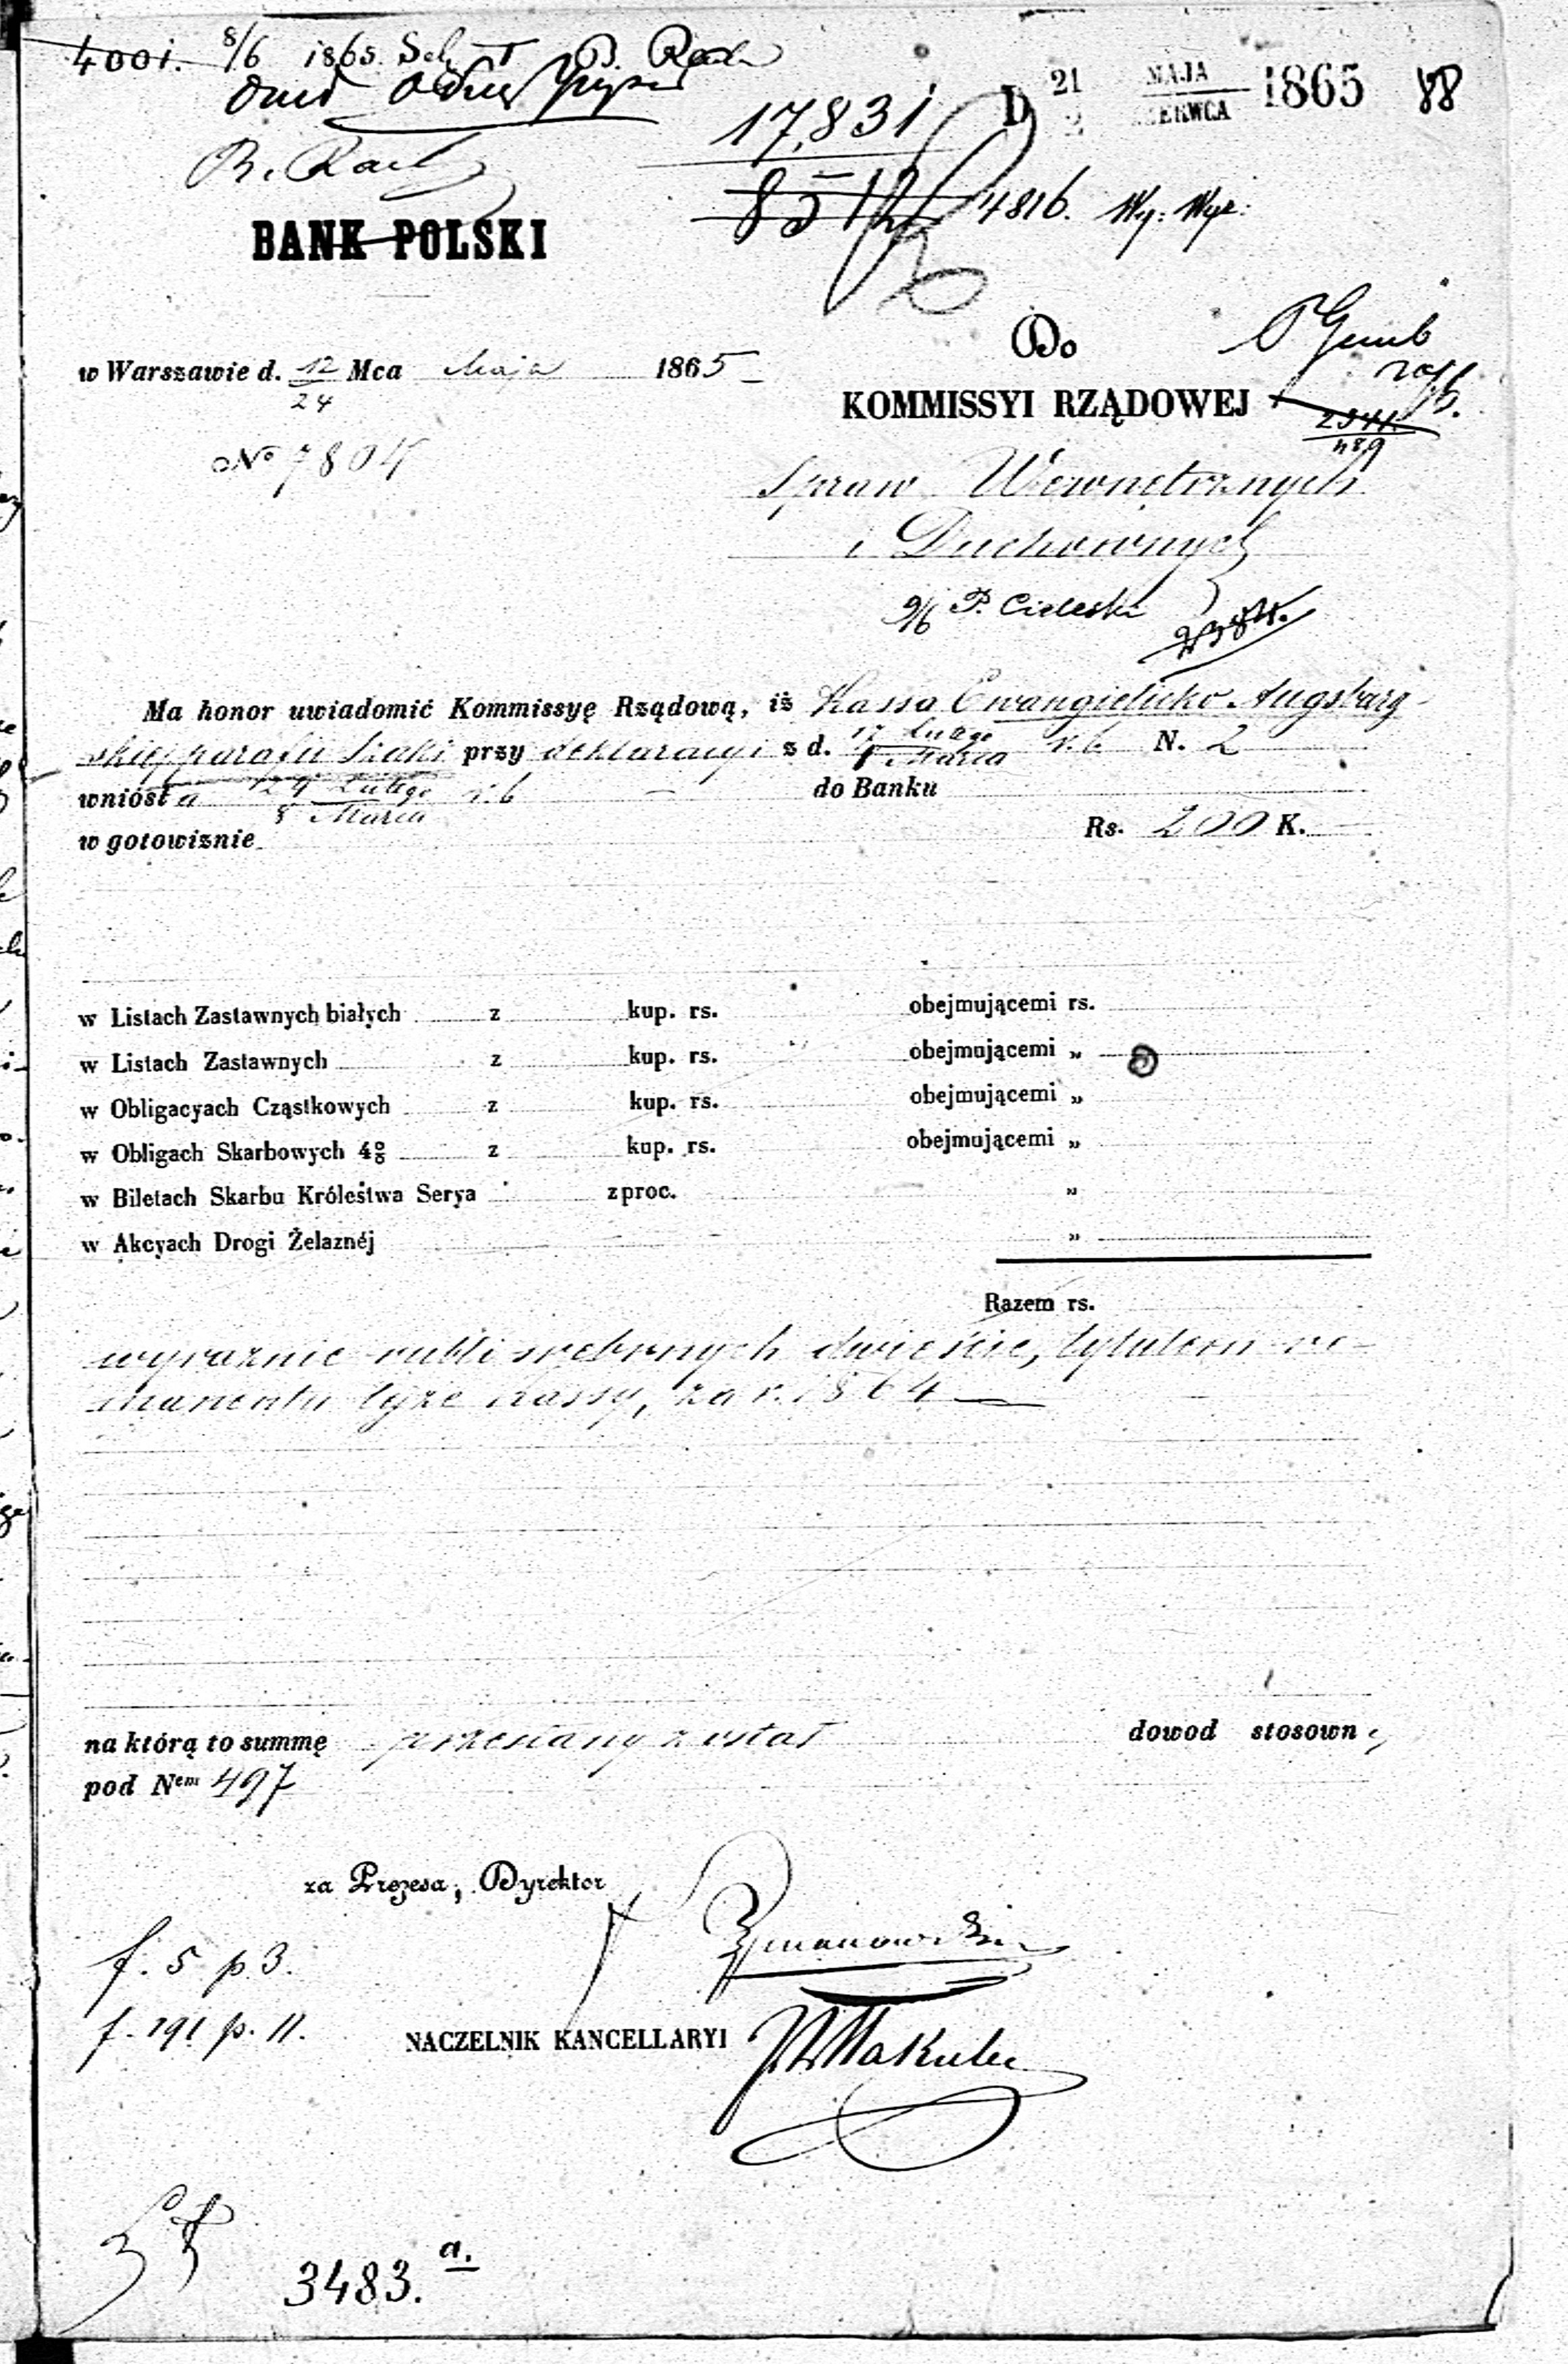 4001. 8/6 1865. T B.
17,831
D 21 MAJA 1865 88
2 CZERWCA
B.
8512 4816. Wy: Wyz:
BANK POLSKI
Do
w Warszawie d. 12/24 Mca Maja 1865
KOMMISSYI RZĄDOWEJ
No 7804
489
Spraw Wewnętrznych
i Duchownych
9/6 P.
Ma honor uwiadomić Kommissyę Rządową, iż Kassa Ewangielicko Augsburg-
skiej parafii przy deklaracyi z d. 17 Lutego / 1 Marca r. b. N. 2
wniosła 24 Lutego / 8 Marca r. b. do Banku
w gotowiznie Rs. 200 K.
w Listach Zastawnych białych z kup. rs. obejmującemi rs.
w Listach Zastawnych z kup. rs. obejmującemi „
w Obligacyach Cząstkowych z kup. rs. obejmującemi „
w Obligach Skarbowych 4% z kup. rs. obejmującemi „
w Biletach Skarbu Królestwa Serya z proc. „
w Akcyach Drogi Żelaznéj „
Razem rs.
wyraźnie rubli srebrnych dwieście, tytułem re-
manentu tyże kassy, za r. 1864
na którą to summę przesłany został dowod stosowny
pod Nem 497
za Prezesa, Dyrektor
f. 5 p. 3.
f. 191 p. 11.
NACZELNIK KANCELLARYI
3483. a.